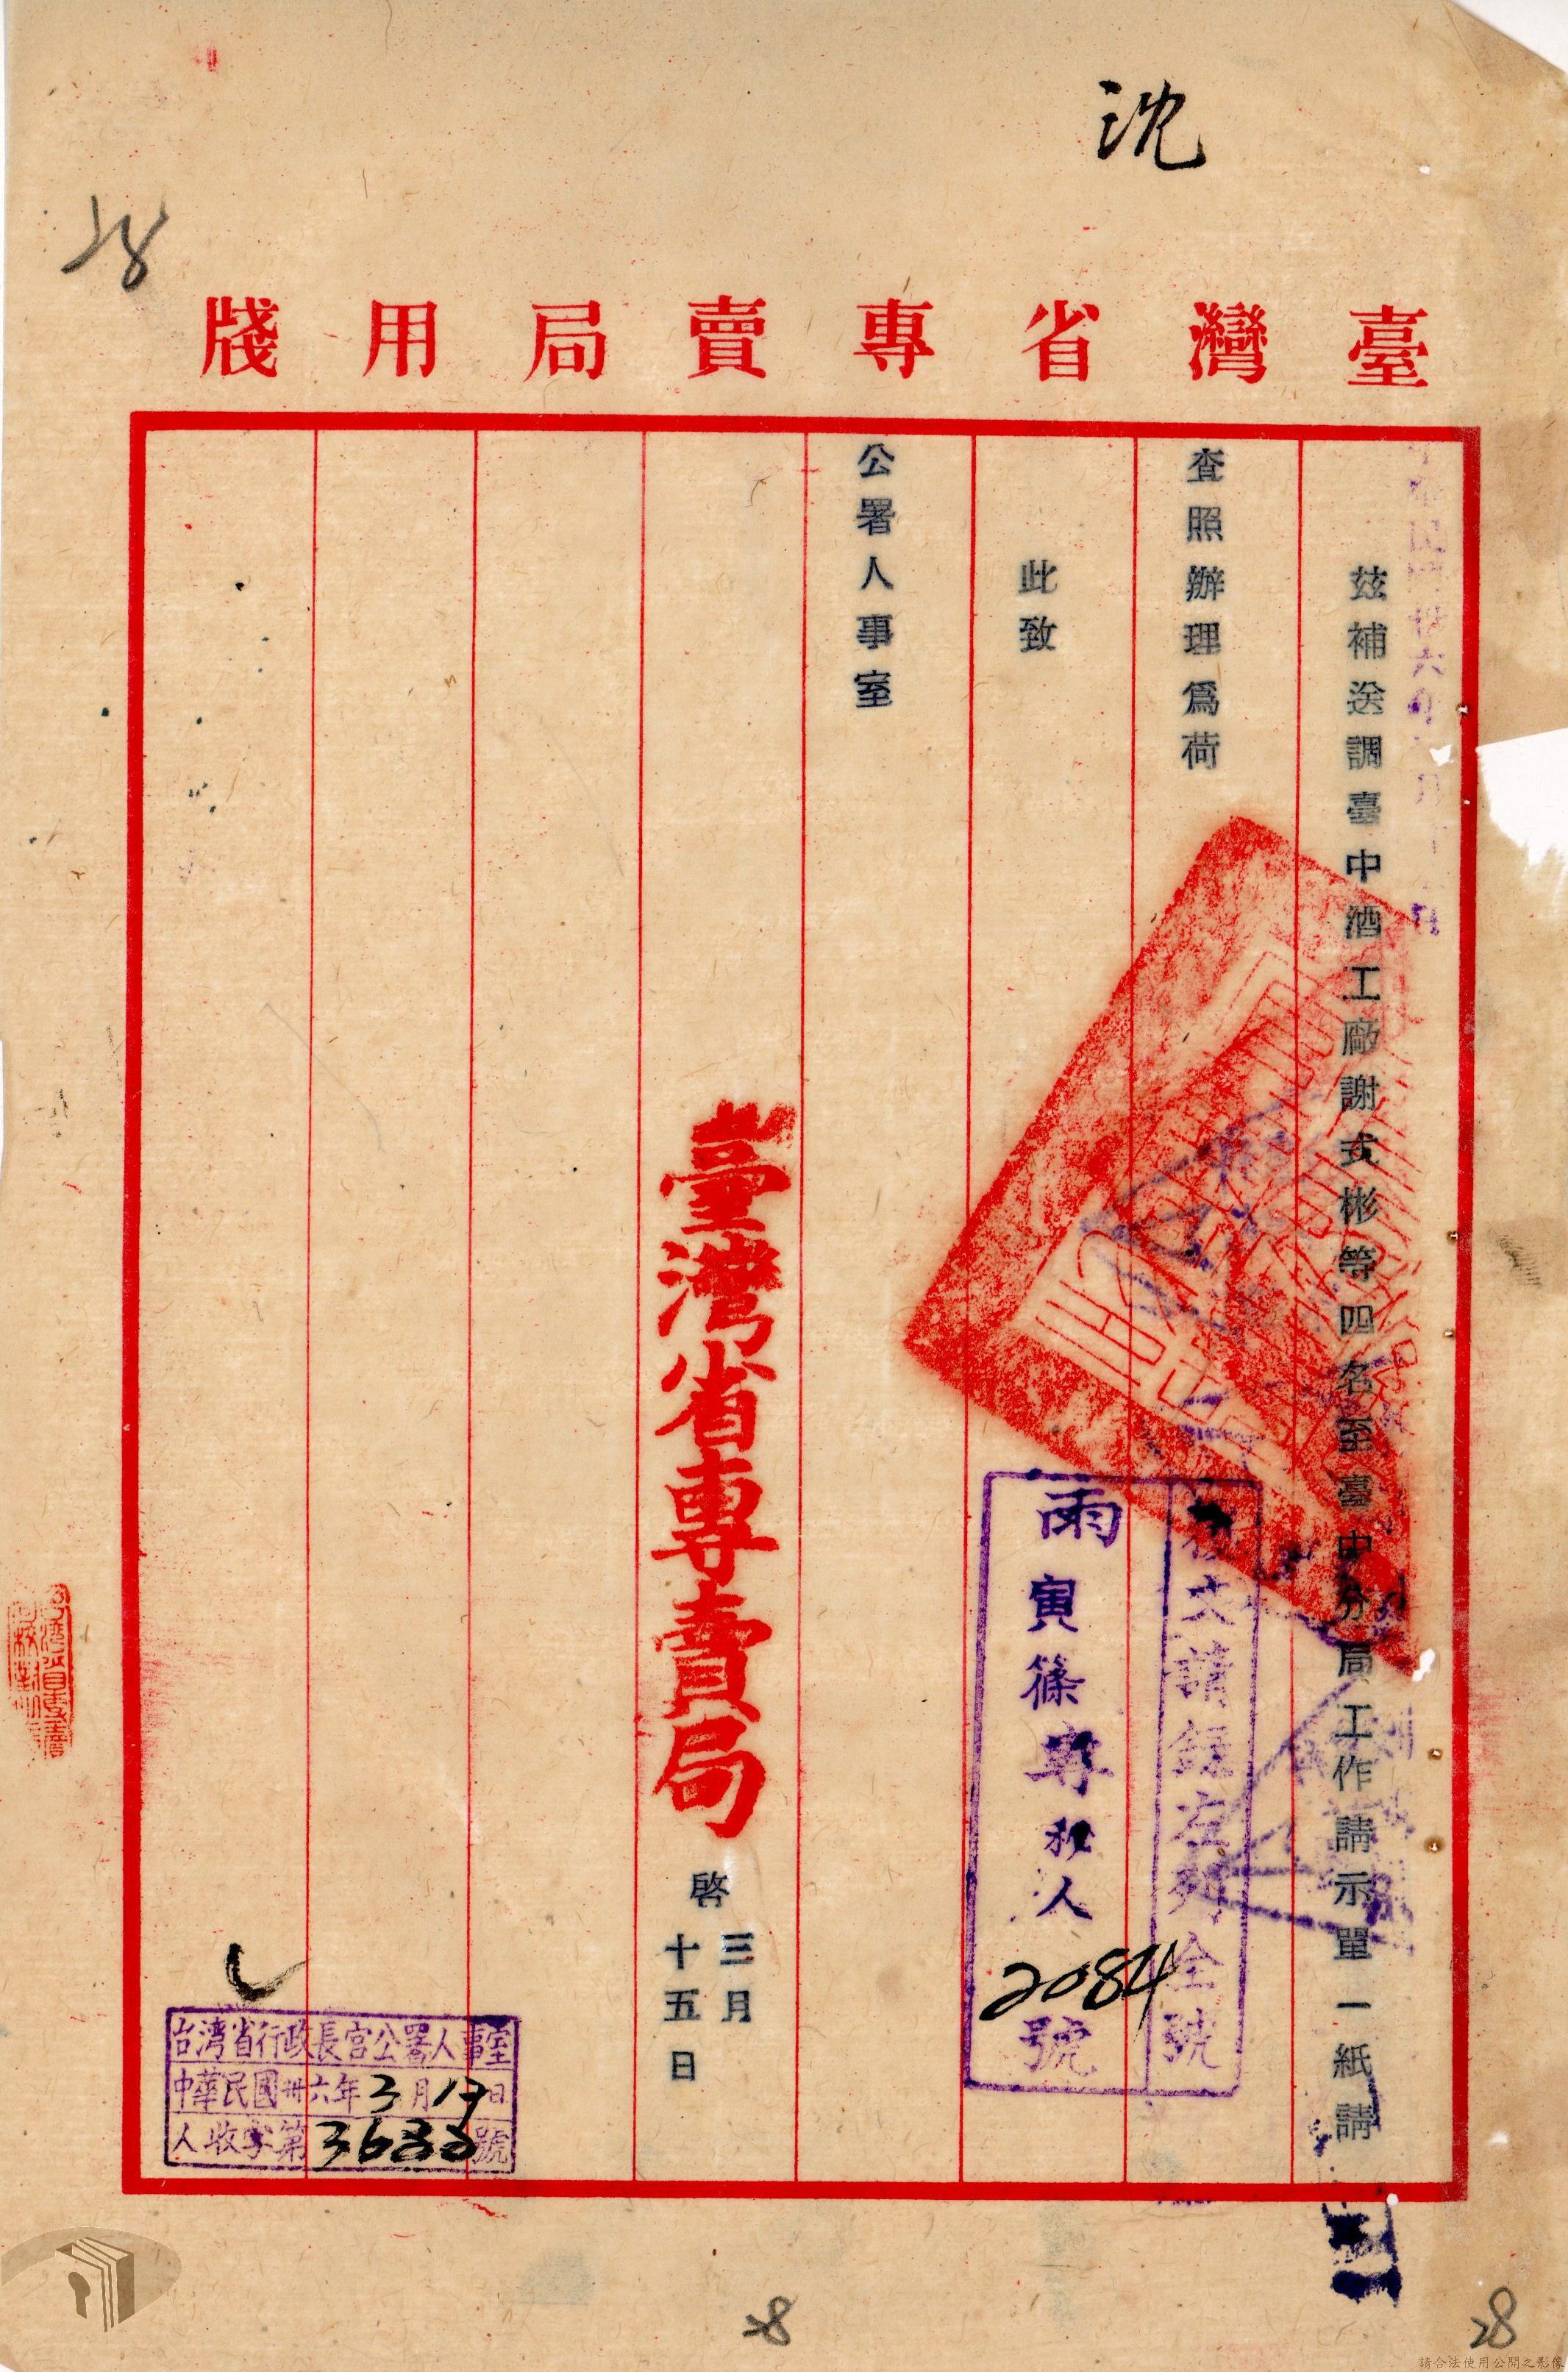 沈
28
臺灣省專賣局用牋
茲補送調臺中酒工廠謝式彬等四名至臺中分局工作請示單一紙請
查照辦理爲荷
此致
公署人事室
臺灣省專賣局
啓
三月
十五日
復文請錄左列全號
雨寅篠專秘人2084號
台湾省行政長官公署人事室
中華民國卅六年3月17日
人收字第3683號
28
28
請合法使用公開之影像